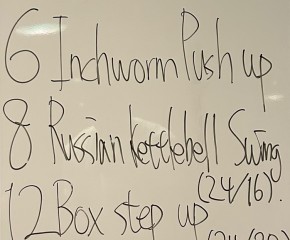 6 Inchworm Push up
8 Russian Kettlebell Swing
(24/16).
12 Box step up